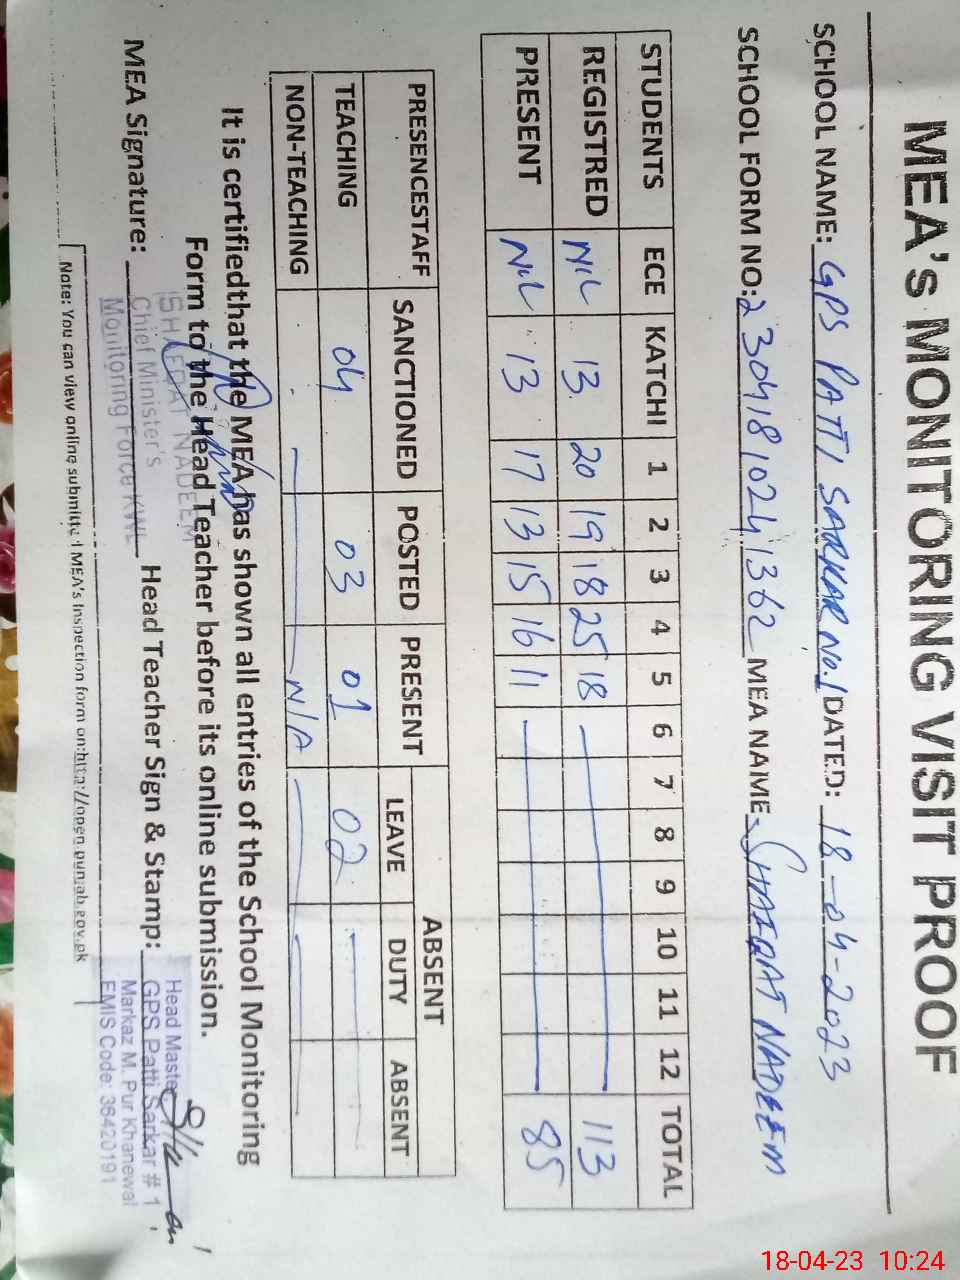 MEA's MONITORING VISIT PROOF
SCHOOL NAME: GPS PATTI SARKAR No.1 DATED: 18-04-2023
SCHOOL FORM NO: 23041810241362 MEA NAME: SHAFQAT NADEEM
STUDENTS ECE KATCHI 1 2 3 4 5 6 7 8 9 10 11 12 TOTAL
REGISTRED NIL 13 20 19 18 25 18 113
PRESENT NIL 13 17 13 15 16 11 85
PRESENCESTAFF SANCTIONED POSTED PRESENT ABSENT
LEAVE DUTY ABSENT
TEACHING 04 03 01 02
NON-TEACHING N/A
It is certifiedthat the MEA has shown all entries of the School Monitoring
Form to the Head Teacher before its online submission.
MEA Signature: Head Teacher Sign & Stamp:
SHAFQAT NADEEM
Chief Minister's
Monitoring Force KWL
Head Master
GPS Patti Sarkar # 1
Markaz M. Pur Khanewal
EMIS Code: 36420191
Note: You can view online submitted MEA's Inspection form on:http://open.punjab.gov.pk
18-04-23 10:24